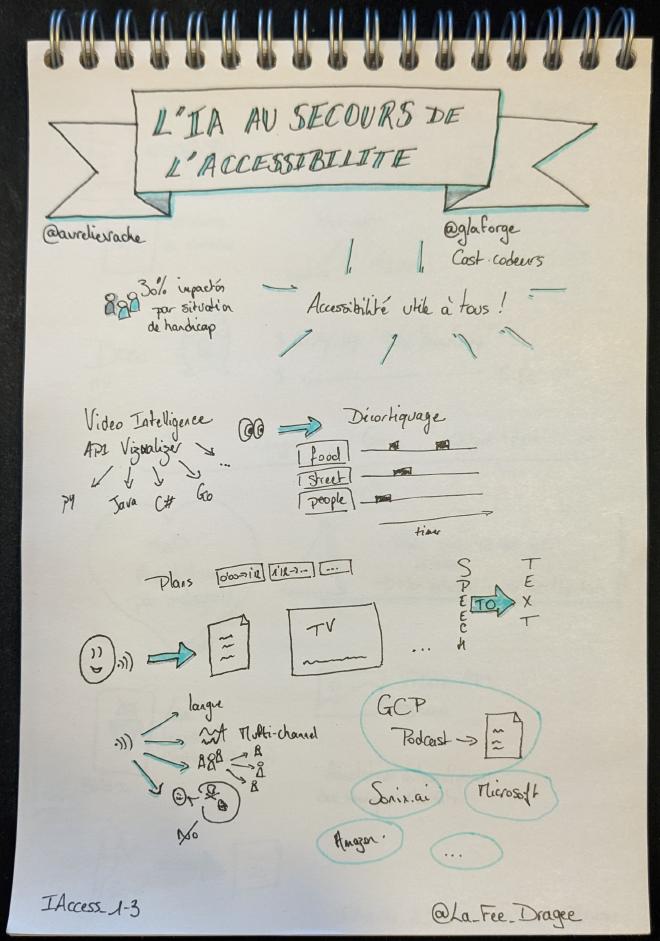 L'IA AU SECOURS DE
L'ACCESSIBILITE
@aurelievache
@glaforge
Cast.codeurs
30% impactés
par situation
de handicap
Accessibilité utile à tous !
Video Intelligence
API Vizualizer
...
PY
Java
C#
Go
Décortiquage
food
street
people
timer
Plans
...
SPEECH
TO
TEXT
TV
...
langue
Multi-channel
GCP
Podcast
Sonix.ai
Microsoft
Amazon.
...
IAccess_1-3
@La_Fee_Dragee